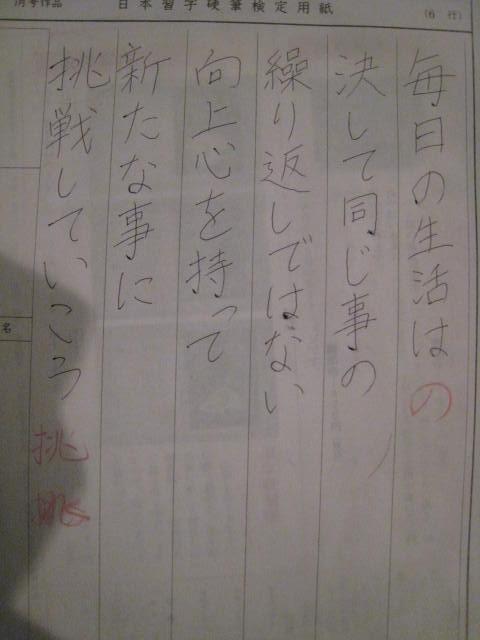 月号作品
日本習字硬筆検定用紙
(6 行)
毎日の生活は の
決して同じ事の
繰り返しではない
向上心を持って
新たな事に
挑戦していこう 挑 挑
名